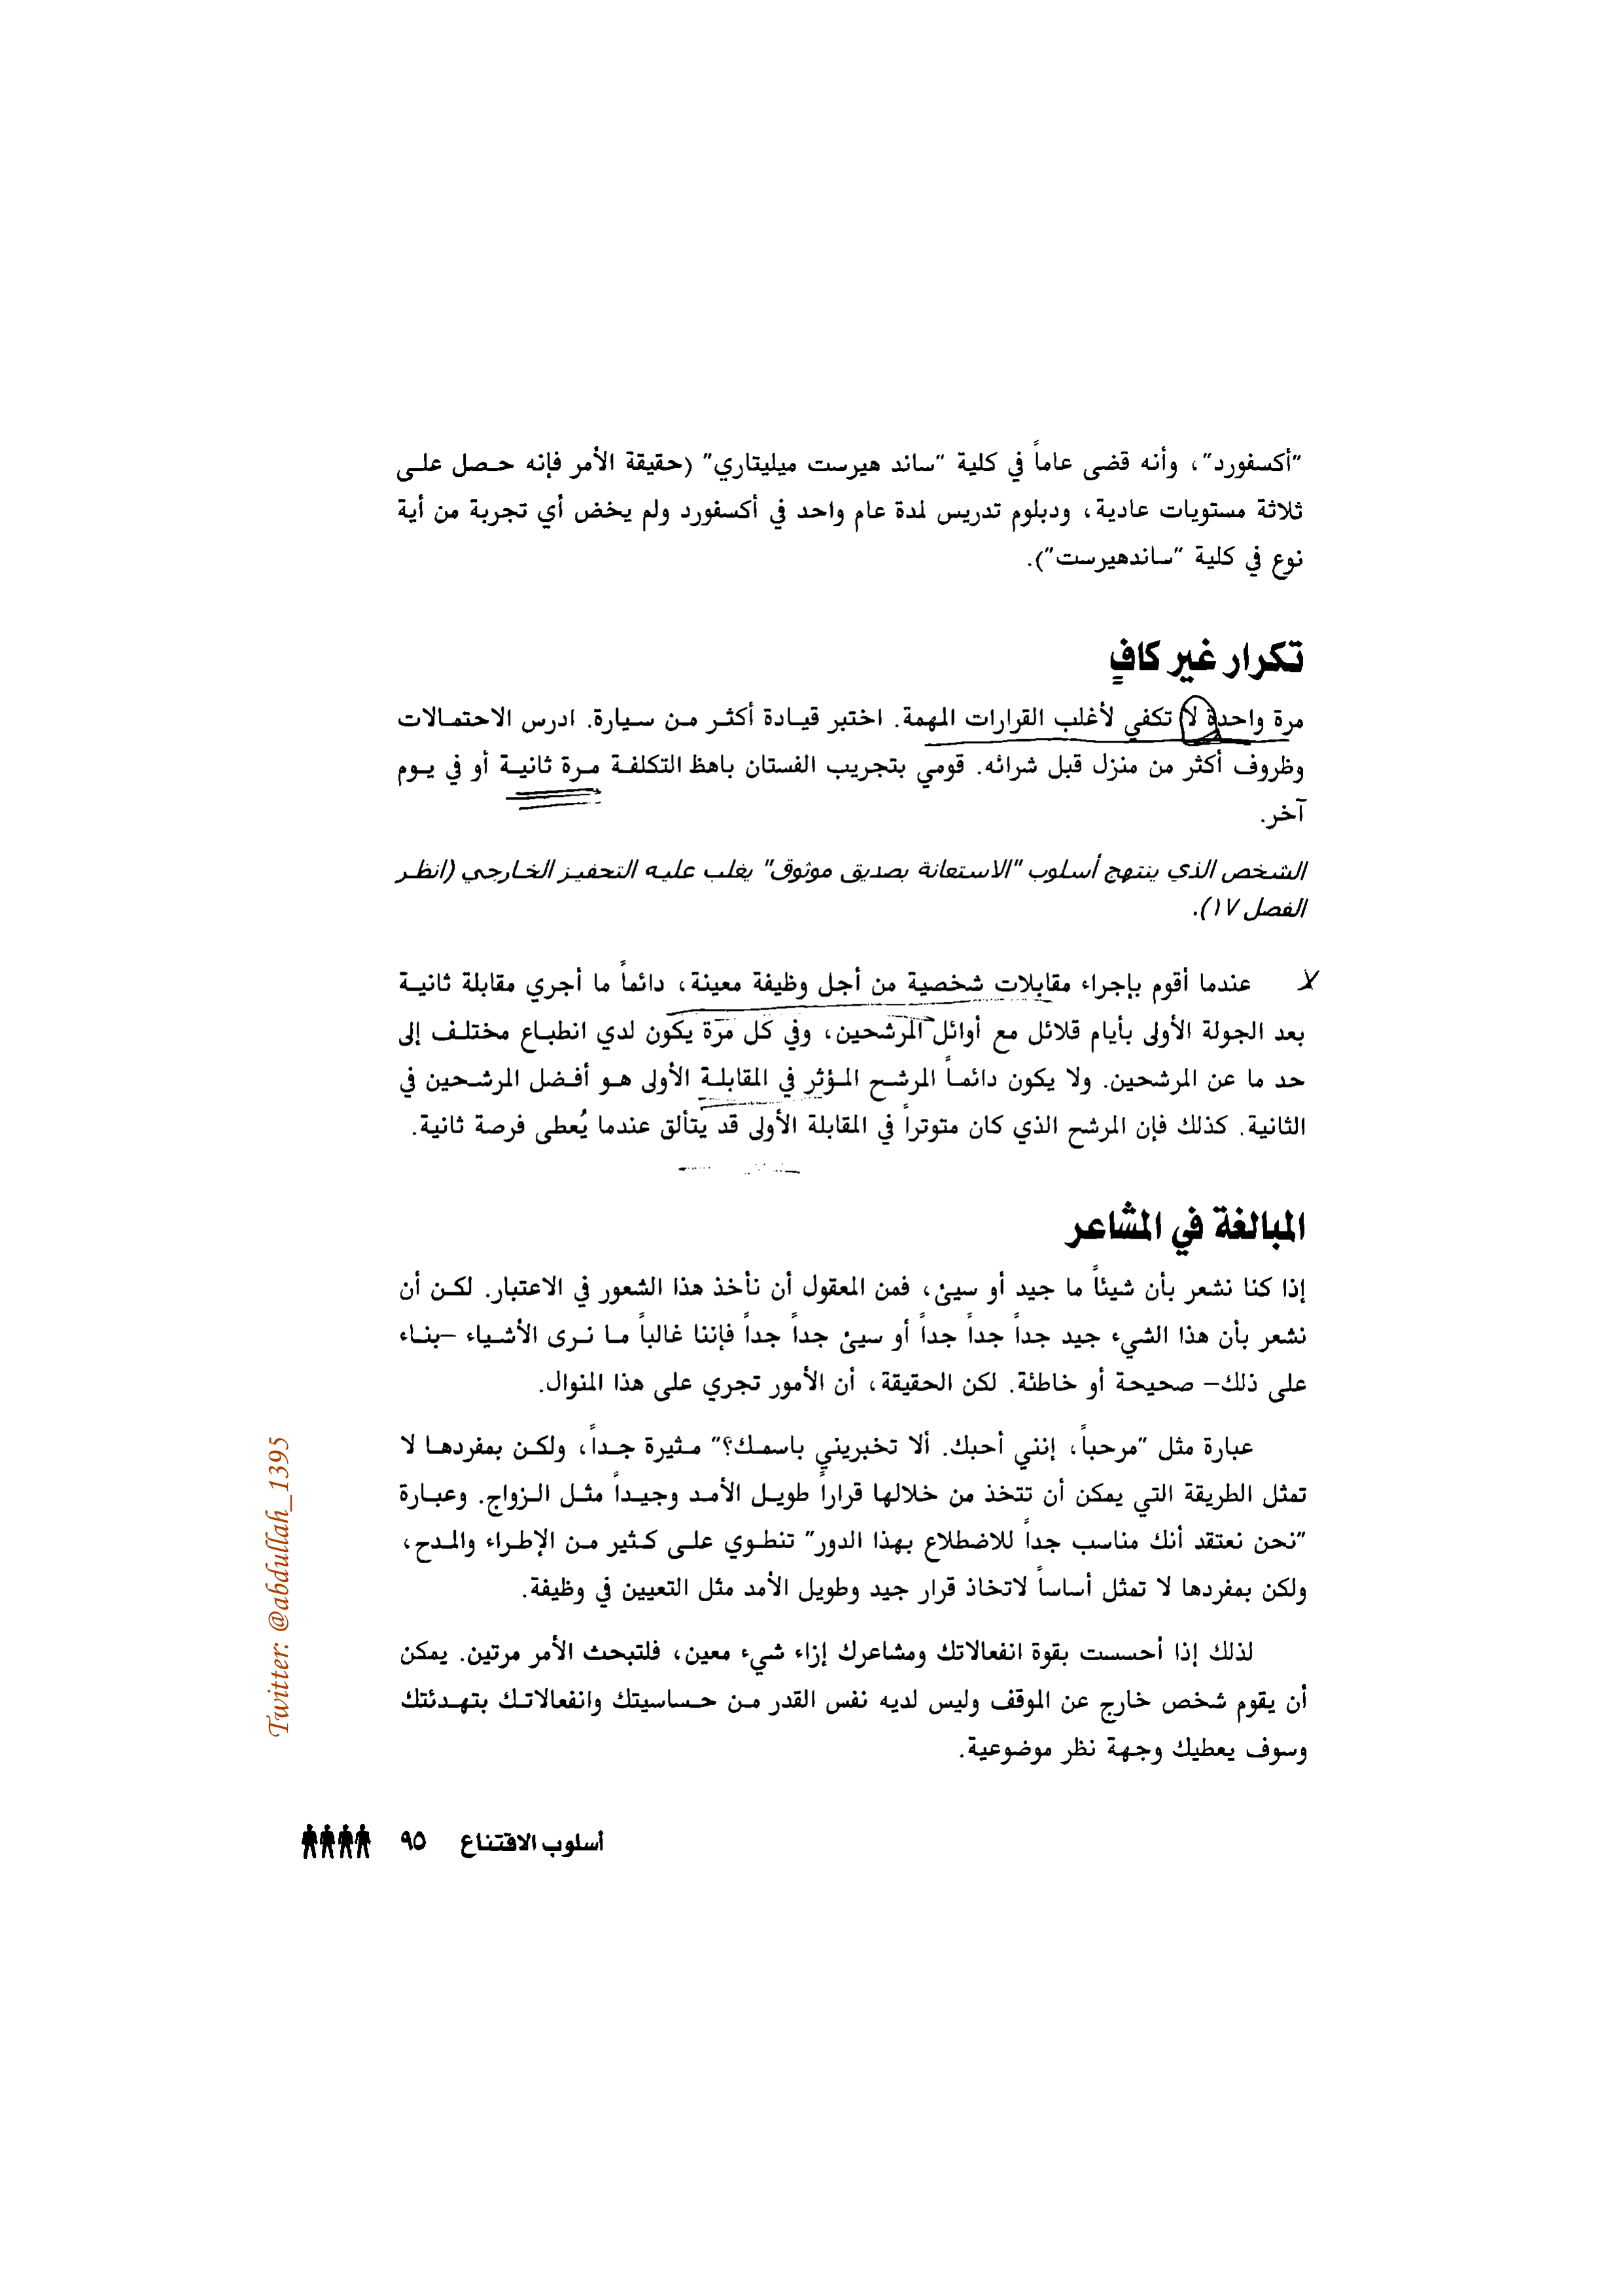 "أكسفورد"، وأنه قضى عاماً في كلية "ساند هيرست ميليتاري" (حقيقة الأمر فإنه حصل على
ثلاثة مستويات عادية، ودبلوم تدريس لمدة عام واحد في أكسفورد ولم يخض أي تجربة من أية
نوع في كلية "ساندهيرست").
تكرار غير كافٍ
مرة واحدة لا تكفي لأغلب القرارات المهمة. اختبر قيادة أكثر من سيارة. ادرس الاحتمالات
وظروف أكثر من منزل قبل شرائه. قومي بتجريب الفستان باهظ التكلفة مرة ثانية أو في يوم
آخر.
الشخص الذي ينتهج أسلوب "الاستعانة بصديق موثوق" يغلب عليه التحفيز الخارجي (انظر
الفصل ١٧).
عندما أقوم بإجراء مقابلات شخصية من أجل وظيفة معينة، دائماً ما أجري مقابلة ثانية
بعد الجولة الأولى بأيام قلائل مع أوائل المرشحين، وفي كل مرة يكون لدي انطباع مختلف إلى
حد ما عن المرشحين. ولا يكون دائماً المرشح المؤثر في المقابلة الأولى هو أفضل المرشحين في
الثانية. كذلك فإن المرشح الذي كان متوتراً في المقابلة الأولى قد يتألق عندما يُعطى فرصة ثانية.
المبالغة في المشاعر
إذا كنا نشعر بأن شيئاً ما جيد أو سيئ، فمن المعقول أن نأخذ هذا الشعور في الاعتبار. لكن أن
نشعر بأن هذا الشيء جيد جداً جداً جداً أو سيئ جداً جداً فإننا غالباً ما نرى الأشياء –بناء
على ذلك– صحيحة أو خاطئة. لكن الحقيقة، أن الأمور تجري على هذا المنوال.
عبارة مثل "مرحباً، إنني أحبك. ألا تخبريني باسمك؟" مثيرة جداً، ولكن بمفردها لا
تمثل الطريقة التي يمكن أن تتخذ من خلالها قراراً طويل الأمد وجيداً مثل الزواج. وعبارة
"نحن نعتقد أنك مناسب جداً للاضطلاع بهذا الدور" تنطوي على كثير من الإطراء والمدح،
ولكن بمفردها لا تمثل أساساً لاتخاذ قرار جيد وطويل الأمد مثل التعيين في وظيفة.
لذلك إذا أحسست بقوة انفعالاتك ومشاعرك إزاء شيء معين، فلتبحث الأمر مرتين. يمكن
أن يقوم شخص خارج عن الموقف وليس لديه نفس القدر من حساسيتك وانفعالاتك بتهدئتك
وسوف يعطيك وجهة نظر موضوعية.
أسلوب الاقتناع ٩٥
Twitter: @abdullah_1395